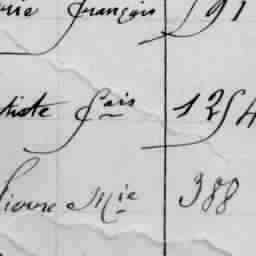 rie françois 591
tiste fcois 1254
Pierre Mie 388